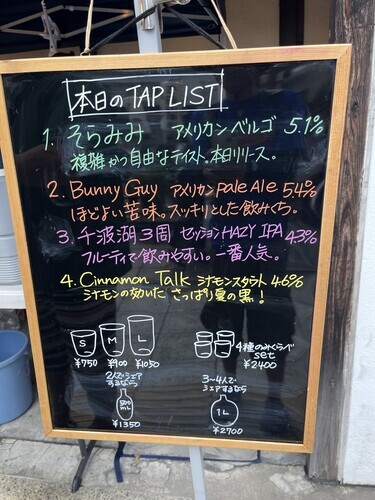 本日のTAP LIST
1. そらみみ アメリカンベルゴ 5.1%
複雑かつ自由なテイスト。本日リリース。
2. Bunny Guy アメリカンpale Ale 5.4%
ほどよい苦味。スッキリとした飲みくち。
3. 千波湖3周 セッションHAZY IPA 4.3%
フルーティで飲みやすい。一番人気。
4. Cinnamon Talk シナモンスタウト 4.6%
シナモンの効いた さっぱり夏の黒!
S M L
¥750 ¥900 ¥1050
4種のみくらべ
set
¥2400
2人でシェア
するなら
500
mL
¥1350
3~4人で
シェアするなら
1L
¥2700